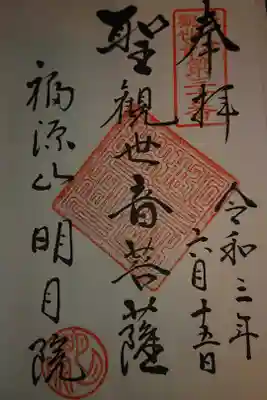 奉拝
令和三年
六月十五日
聖観世音菩薩
福源山明月院